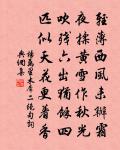 輕薄西風未辦霜
夜揉黃雪作秋光
吹殘六出猶餘四
匹似天花更著香
楊萬里木犀二絕句詞
典網集